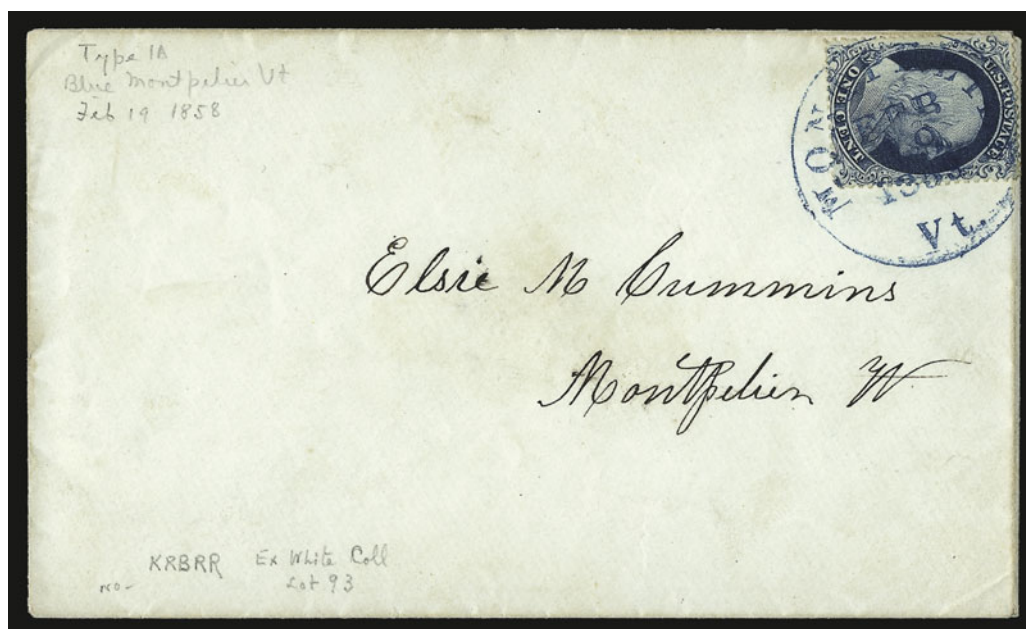 Type 1A
Blue Montpelier Vt
Feb 19 1858
U.S. POSTAGE
ONE CENT
FEB
19
Vt.
Elsie M Cummins
Montpelier Vt
KRBRR Ex White Coll
NO- Lot 93